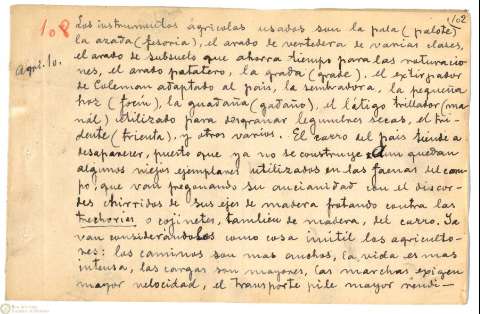 102
108
Los instrumentos agrícolas usados son la pala (palote)
la azada (fesoria), el arado de vertedera de varias clases,
el arado de subsuelo que ahorra tiempo para las roturacio-
Agri. 10.
nes, el arado patatero, la grada (grade), el extirpador
de Coleman adaptado al país, la sembradora, la pequeña
hoz (focín), la guadaña (gadaño), el látigo trillador (ma-
nál) utilizado para desgrinar legumbres secas, el tri-
dente (trienta), y otros varios. El carro del país tiende a
desaparecer, puesto que ya no se construye. Aun quedan
algunos viejos ejemplares utilizados en las faenas del cam-
po, que van pregonando su ancianidad con el discor-
des chirridos de sus ejes de madera frotando contra las
trechorias o cojinetes, tambien de madera, del carro. Ya
van considerándolos como cosa inútil los agriculto-
res: los caminos son mas anchos, la vida es mas
intensa, las cargas son mayores, las marchas exigen
mayor velocidad, el transporte pide mayor rendi-